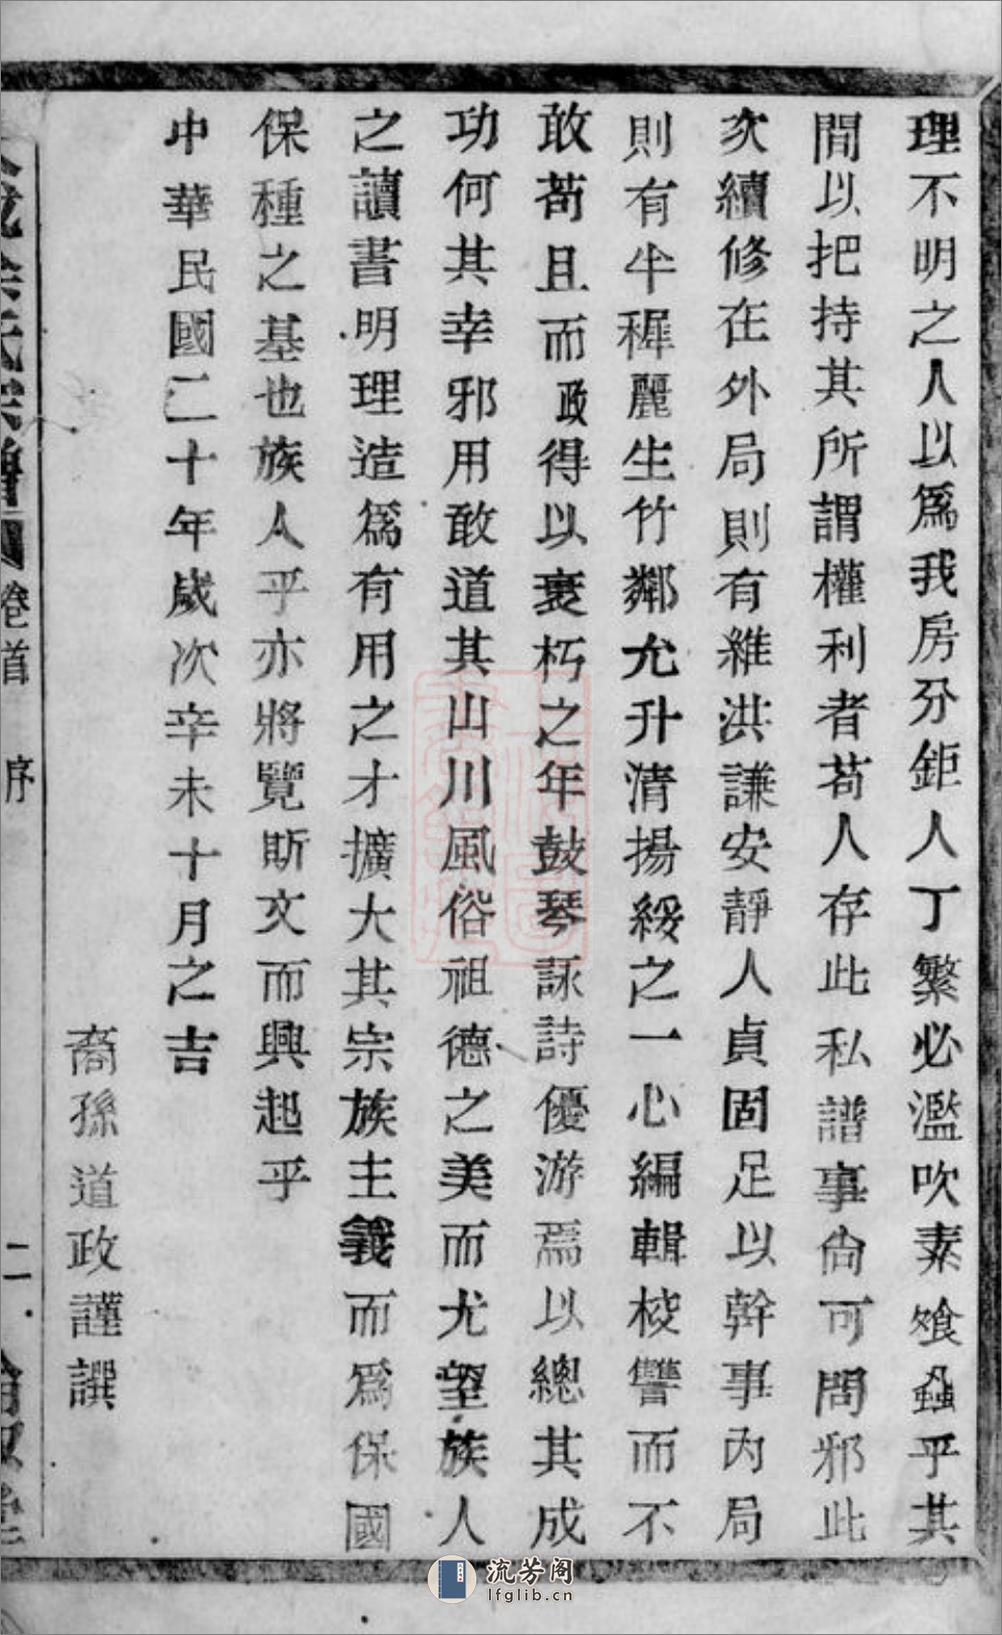 理不明之人以爲我房分鉅人丁繁必濫吹素飧蝨乎其
間以把持其所謂權利者苟人存此私譜事尙可問邪此
次續修在外局則有維洪謙安靜人貞固足以幹事內局
則有半穉麗生竹鄰允升清揚綏之一心編輯校讐而不
敢苟且而政得以衰朽之年鼓琴詠詩優游焉以總其成
功何其幸邪用敢道其山川風俗祖德之美而尤望族人
之讀書明理造爲有用之才擴大其宗族主義而爲保國
保種之基也族人乎亦將覽斯文而興起乎
中華民國二十年歲次辛未十月之吉
裔孫道政謹譔
氏宗譜 卷首 序 二
流芳阁
lfglib.cn